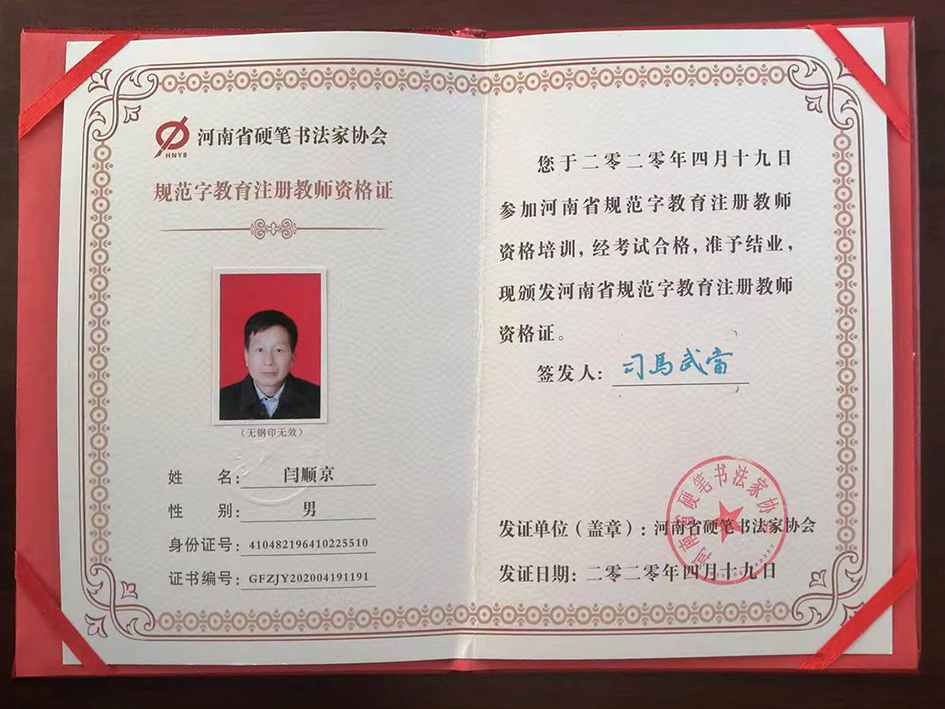 HNYB
河南省硬笔书法家协会
规范字教育注册教师资格证
（无钢印无效）
姓 名：闫顺京
性 别：男
身份证号：410482196410225510
证书编号：GFZJY202004191191
您于二零二零年四月十九日
参加河南省规范字教育注册教师
资格培训，经考试合格，准予结业，
现颁发河南省规范字教育注册教师
资格证。
签发人：司馬武當
河南省硬笔书法家协会
发证单位（盖章）：河南省硬笔书法家协会
发证日期：二零二零年四月十九日